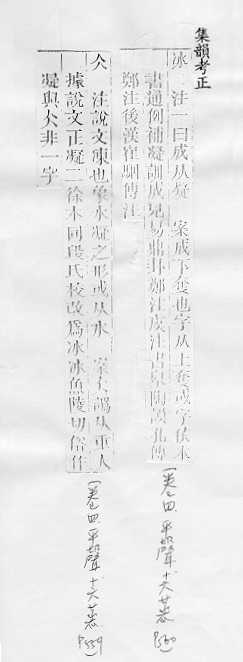 集韻考正
冰 注一曰成从凝 案成下奪也字从上奪或字依本
書通例補凝訓成見易鼎卦鄭注虞注書臯陶謨孔傳
鄭注後漢崔駰傳注
(卷四 平聲 十六蒸 P560)
仌 注說文凍也象水凝之形或从水 案仌譌从重人
據說文正凝二徐本同段氏校改爲冰冰魚陵切俗作
凝與仌非一字
(卷四 平聲 十六蒸 P559)